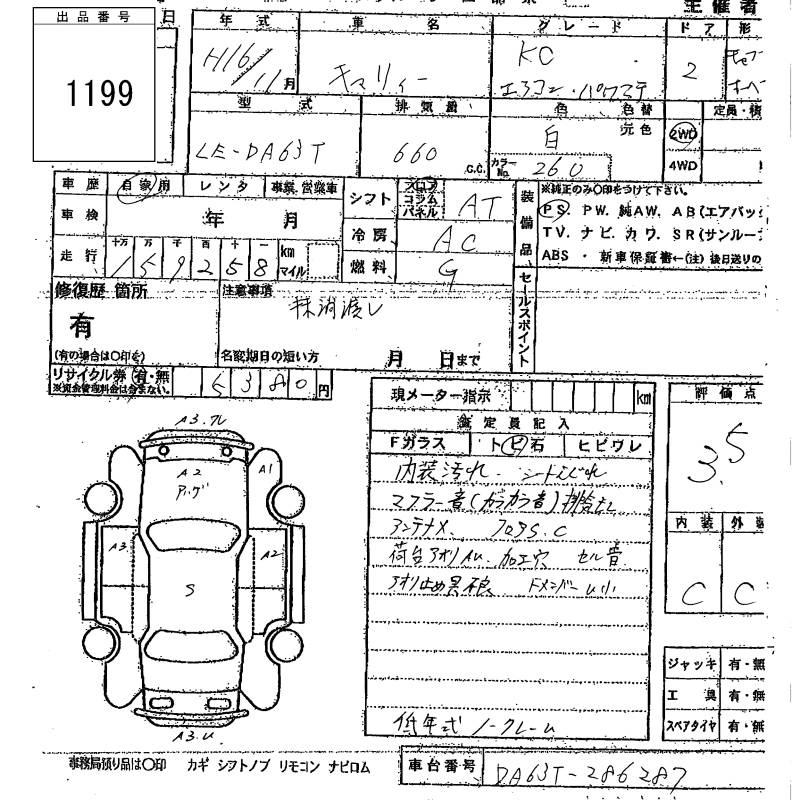 出品番号
1199
日
主催者
年式 車名 グレード ドア 形
H16/11月 キャリィー KC 2
エアコン・パワステ
型式 排気量 色 色替 定員・積
LE-DA63T 660 C.C. 白 元色 2WD
カラーNo. 260 4WD
車歴 自家用 レンタ 事業.営業車
車検 年 月
走行 十万 万 千 百 十 一 km マイル
159258
シフト フロア コラム パネル AT
冷房 AC
燃料 G
装備品
※純正のみ○印をつけて下さい。
PS. PW. 純AW. AB(エアバッ
TV. ナビ. カワ. SR(サンルー
ABS ・ 新車保証書←(注)後日送りの
修復歴 箇所
有
(有の場合は○印を)
注意事項
抹消渡し
名変期日の短い方 月 日まで
セールスポイント
リサイクル券 有・無
※資金管理料金は含まない。
6380円
現メーター指示 km
評価点
3.5
検定員記入
Fガラス トビ石 ヒビワレ
内装汚れ. シート
マフラー音(ガラガラ音)
アンテナX. フロアS.C
荷台アオリ 加工穴 セル音
アオリ止め具不良
低年式 ノークレーム
内装 外装
C C
ジャッキ 有・無
工具 有・無
スペアタイヤ 有・無
A3.
A2
A1
A3
A2
S
A3.U
事務局預り品は○印 カギ シフトノブ リモコン ナビロム
車台番号 DA63T-286287